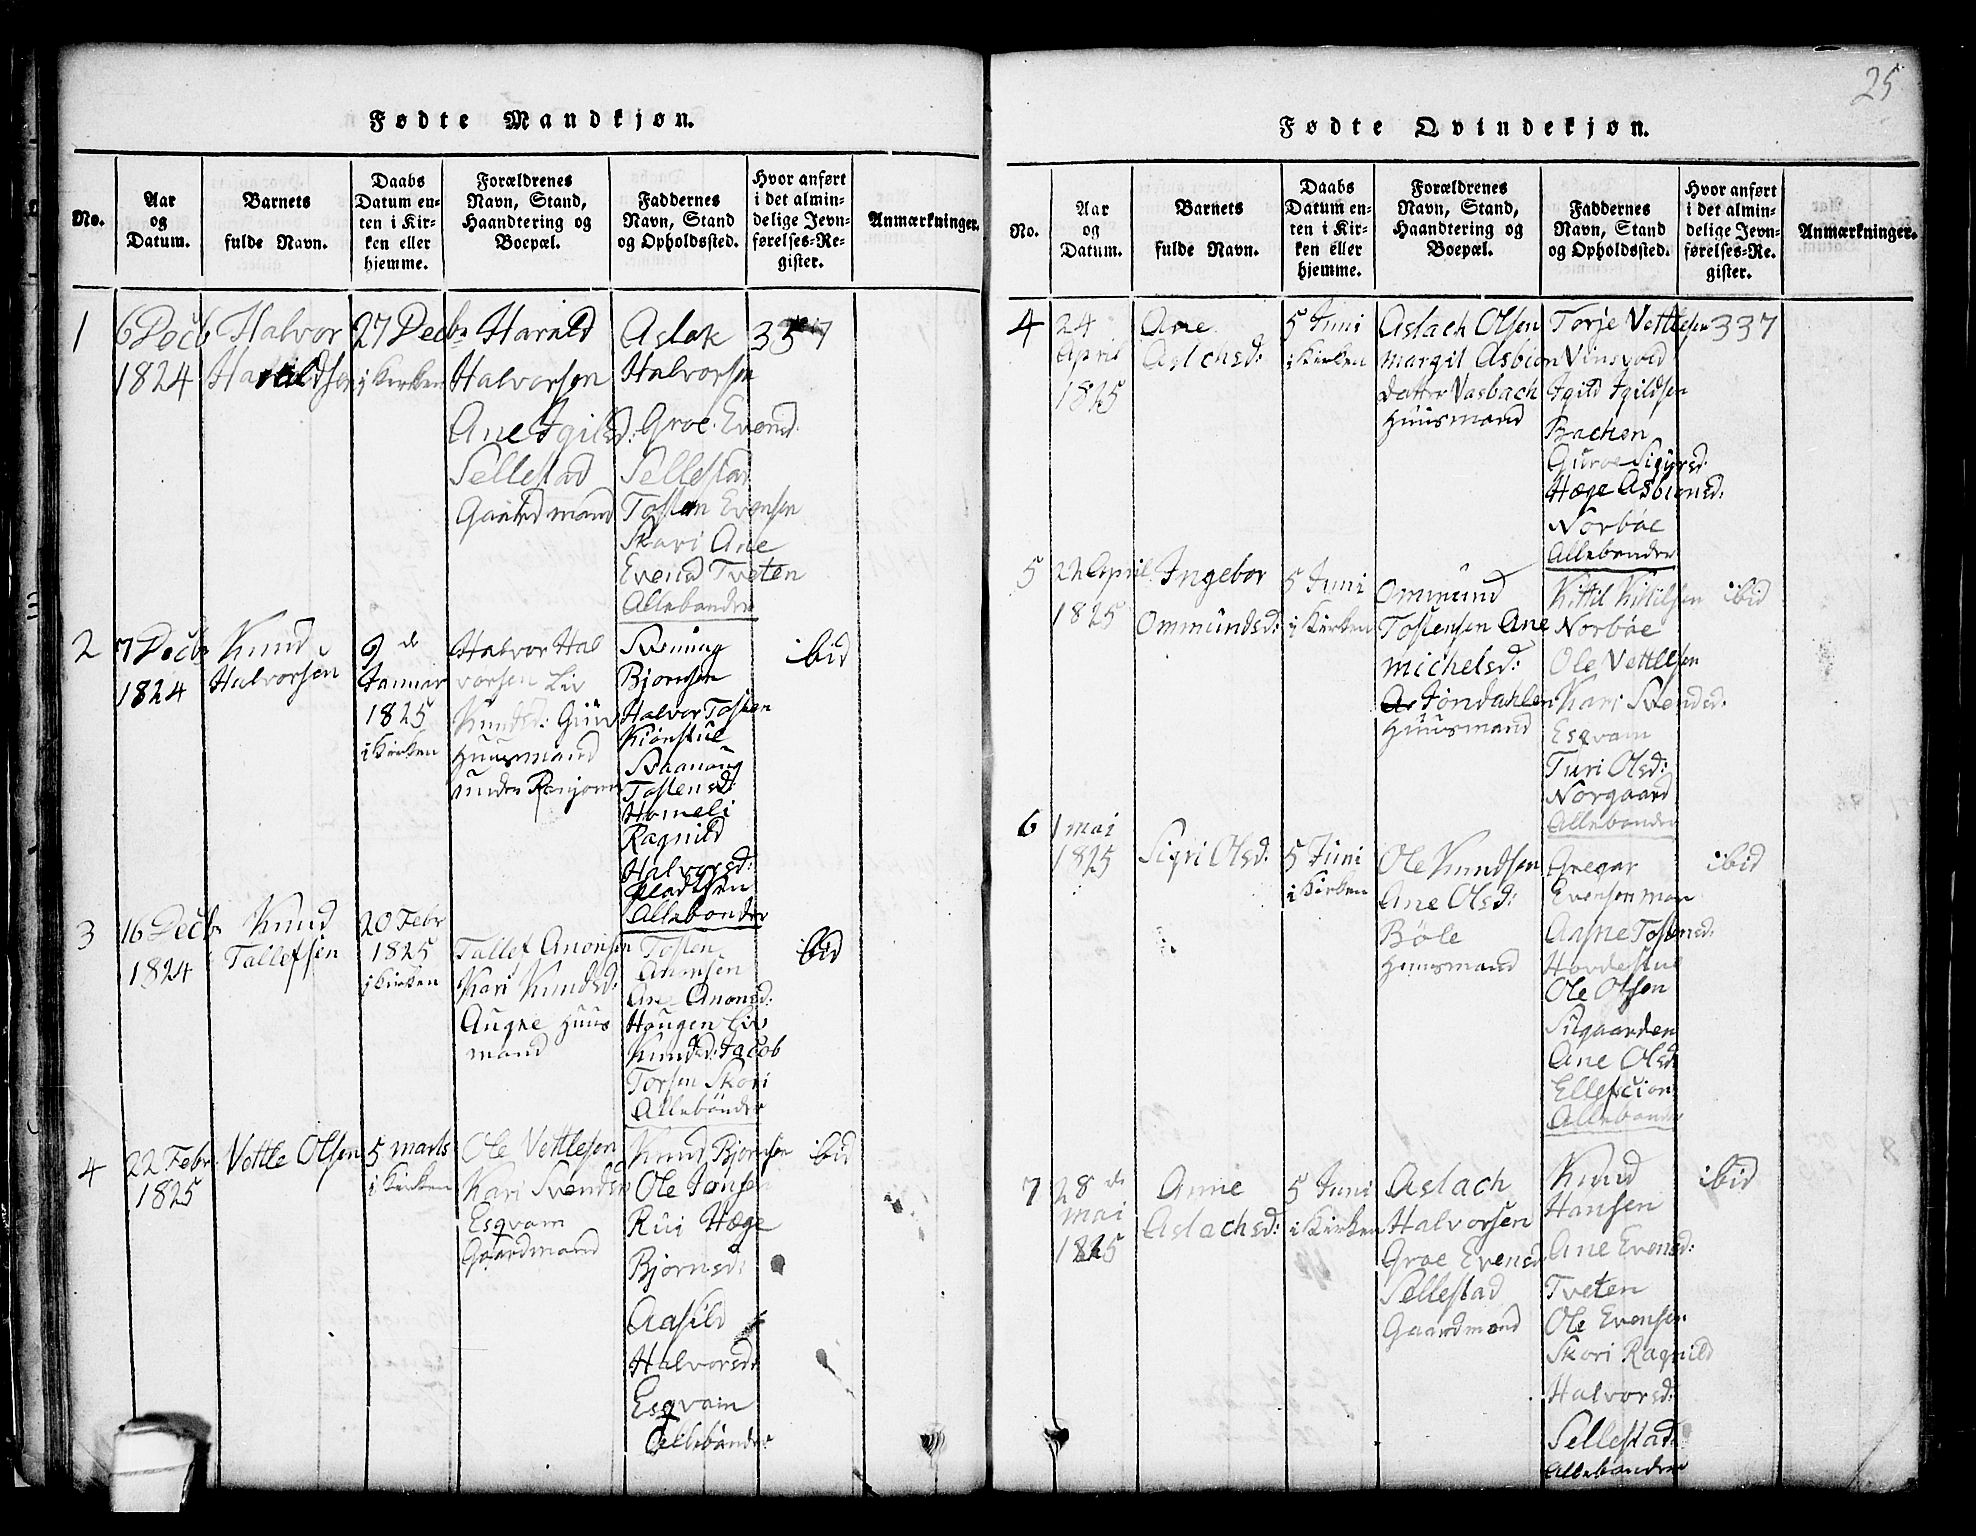 25
Fødte Mandkjøn.
No.
Aar
og
Datum.
Barnets
fulde Navn.
Daabs
Datum en-
ten i Kir-
ken eller
hjemme.
Forældrenes
Navn, Stand,
Haandtering og
Boepæl.
Faddernes
Navn, Stand
og Opholdssted.
Hvor anført
i det almin-
delige Jevn-
førelses-Re-
gister.
Anmærkninger.
1
6 Decb
1824
Halvor
Haraldsen
27 Decbr
i Kirken
Harald
Halvorsen
Ane Igilsd:
Sellestad
Gaardmand
Aslak
Halvorsen
Groe Evensd:
Sellestad
Tosten Evensen
Skori Ane
Evensd Tveten
Allebønder
337
2
7 Decbr
1824
Knud
Halvorsen
9 de
Januar
1825
i Kirken
Halvor Hal
vorsen Liv
Knudsd:
Huusmand
under
Svenung
Bjornsen
Halvor Tosten
Kiønstul
Tostensd:
Homeli
Ragnild
Halvorsd:
Allebønder
ibid
3
16 Decbr
1824
Knud
Tallefsen
20 Febr
1825
i Kirken
Tallef Anonsen
Kari Knudsd:
Augne Huus
mand
Tosten
Anonsen
Ane Anonsd:
Haugen Liv
Knudsd: Jacob
Torsen Skori
Allebønder
ibid
4
22 Febr
1825
Vettle Olsen
5 marts
i Kirken
Ole Vettlesen
Kari Svendsd
Esqvam
Gaardmand
Knud Bjornsen
Ole Jonsen
Rui Hæge
Bjornsd:
Aasild
Halvorsd:
Esqvam
Allebønder
ibid
Fødte Qvindekjøn.
No.
Aar
og
Datum.
Barnets
fulde Navn.
Daabs
Datum en-
ten i Kir-
ken eller
hjemme.
Forældrenes
Navn, Stand,
Haandtering og
Boepæl.
Faddernes
Navn, Stand
og Opholdssted.
Hvor anført
i det almin-
delige Jevn-
førelses-Re-
gister.
Anmærkninger.
4
24
April
1825
Ane
Aslchsd:
5 Juni
i Kirken
Aslach Olsen
Margit Asbion
Datter Vasbach
Huusmand
Torje Vettlesen
Vinsvold
Igild Igildsen
Bachen
Gurve Sigursd:
Hæge Asbionsd:
Norbøe
Allebønder
337
5
22 April
1825
Ingebor
Ommundsd:
5 Juni
i Kirken
Ommund
Tostensen Ane
Michelsd:
Jøndahlen
Huusmand
Kittil Kittilsen
Norbøe
Ole Vettlesen
Kari Svendsd:
Esqvam
Turi Olsd:
Norgaard
Allebønder
ibid
6
1 mai
1825
Sigri Olsd:
5 Juni
i Kirken
Ole Knudsen
Ane Olsd:
Bøle
Huusmand
Gregar
Evensen
Aasne Tostensd:
Hordestul
Ole Olsen
Silgaarden
Ane Olsd:
Allebønder
ibid
7
28 de
mai
1825
Anne
Aslachsd:
5 Juni
i Kirken
Aslach
Halvorsen
Groe Evensd
Sellestad
Gaardmand
Knud
Hansen
Ane Evensd:
Tveten
Ole Evensen
Skori Ragnild
Halvorsd:
Sellestad:
Allebønder
ibid